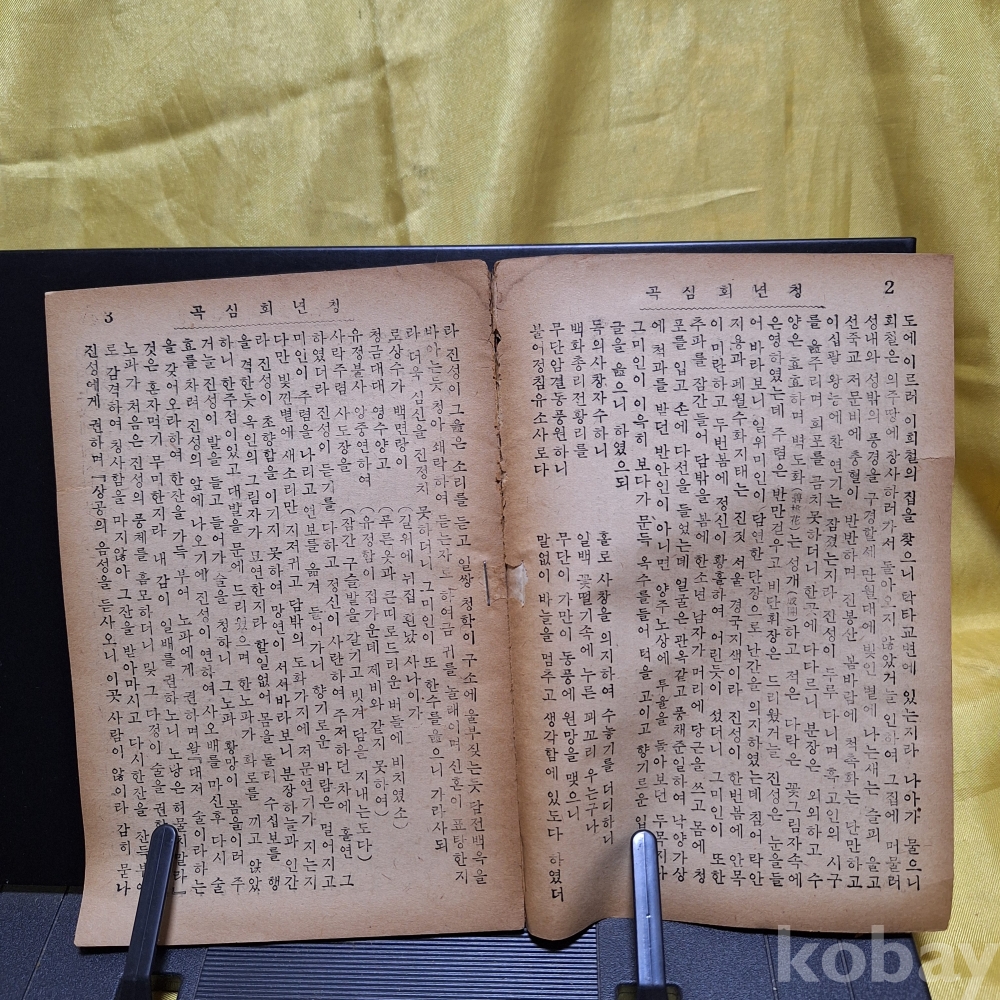 2
청년회심곡
도에 이르러 이회철의 집을 찾으니 탁타교변에 있는지라 나아가 물으니
회철은 의주땅에 장사하러가서 돌아오지 않았거늘 인하여 그집에 머물러
성내와 성밖의 풍경을 구경할세 만월대에 빛인 별에 나는새는 슬피 울고
선죽교 저문비에 충혈이 반반하며 진봉산 봄바람에 척촉화는 난만하고
이십팔 왕능에 찬 연기는 잠겼는지라 진성이 두루 다니며 후고인의 시구
를 읊주리며 회포를 금치 못하더니 한곳에 다다르니 분장은 외외하고 수
양은 효효하며 벽도화는 성개하고 적은 다락은 꽃그림자속에
은영하였는데 주렴은 반만걷우고 비단휘장은 드리웠거늘 진성은 눈을들
어 바라보니 일위미인이 담연한 단장으로 난간을 의지하였는데 침어 락안
지용과 페월수화지태는 진짓 서울 경국지색이라 진성이 한번봄에 안목
이 미란하고 두번봄에 정신이 황홀하여 어린듯이 섰더니 그미인이 또한
추파를 잠간들어 담밖을 봄에 한소년 남자가 머리에 당근을 쓰고 몸에 청
포를 입고 손에 다선을 들었는데 얼굴은 관옥같고 풍채준일하여 낙양가상
에 척과를 받던 반안인이 아니면 양주노상에 투율을 돌아보던 두목지라
그미인이 이윽히 보다가 문득 옥수를들어 턱을 고이고 향기르운 입
글을 읊으니 하였으되
독의사창자수하니 홀로 사창을 의지하여 수놓기를 더디하니
백화총리전황리를 일백 꽃떨기속에 누른 꾀꼬리 우는구나
무단암결동풍원하니 무단이 가만이 동풍에 원망을 맺으니
불어정침유소사로다 말없이 바늘을 멈추고 생각함에 있도다 하였더
3
청년회심곡
라 진성이 그읊은 소리를 듣고 일쌍청학이 구소에 울부짖는듯 담전백옥을
바아는듯 청아 쇄락하여 듣는자로 하여금 귀를 놀래이며 신혼이 표탕한지
라 더욱 심신을 진정치 못하더니 그미인이 또 한수를 읊으니 가라사되
로상수가 백면랑이 (길위에 뉘집 흰낯 사나이가
청금대대 영수양고 (푸른옷과 큰띠로드리운 버들에 비치였소)
유정불사 양중연하여 (유정함이 집가운데 제비와 같지 못하여)
사락주렴 사도장을 (잠간 구슬발을 갈기고 빗겨 담을 지내는도다)
하였더라 진성이 듣기를 다하고 정신이 사란하여 주저하던 차에 홀연 그
미인이 주렴을 나리고 연보를 옮겨 들어가니 향기로운 바람은 멀어지고
다만 빛낀볕에 새소리만 지저귀고 담밖의 도화가지에 저문연기가 지는지
라 진성이 초향함을 이기지 못하여 망연이 서서바라보니 분장하늘과 인간
을 격한듯 옥인의 그림자가 묘연한지라 할일없어 몸을 돌티 수십보를 행
하니 한주점이 있고 대발을 문에 드리웠으며 한노파가 화로를 끼고 앉았
거늘 진성이 발을 들고 들어가 술을 청하니 그노파 황망이 몸을이러 주
효를 차려 진성의 앞에 나오기에 진성이 연하여 사오배를 마신후 다시 술
을 갖어오라하여 한잔을 가득 부어 노파에게 권하며왈 『대저 술이라하는
것은 혼자먹기 무미한지라 내 감이 일배를 권하노니 노낭은 허물치말라』
노파가 처음은 진성의 풍체를 흠모하더니 및 그다정이 술을
로 감격하여 칭사함을 마지않아 그잔을 받아마시고 다시한잔을
진성에게 권하며 『상공의 음성을 듣사오니 이곳사람이 않이라 감히 묻나
kobay